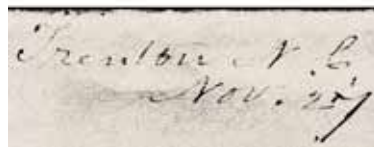 Trenton N. C.
Nov. 25/